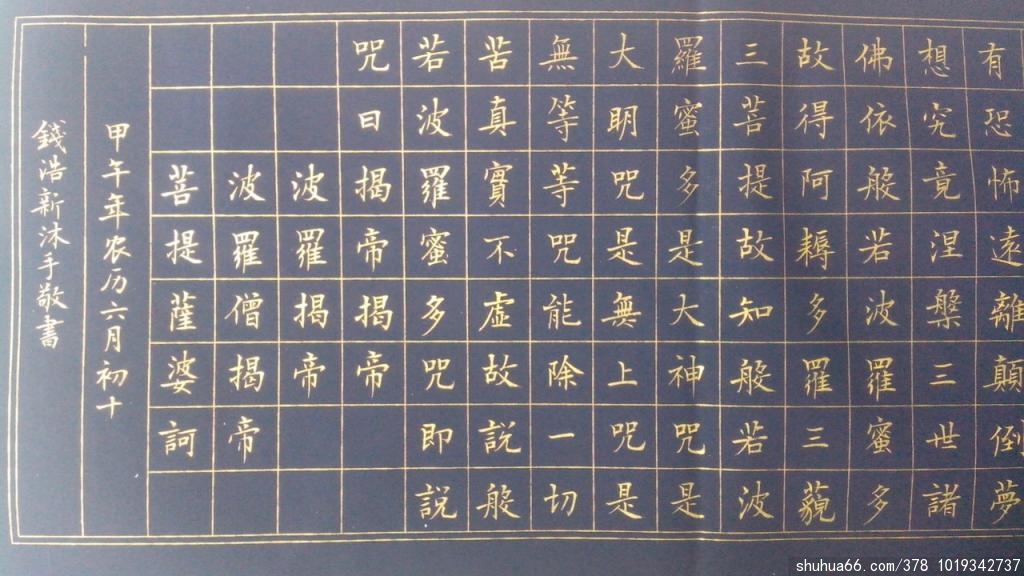 有恐怖遠離顛倒夢
想究竟涅槃三世諸
佛依般若波羅蜜多
故得阿耨多羅三藐
三菩提故知般若波
羅蜜多是大神咒是
大明咒是無上咒是
無等等咒能除一切
苦真實不虛故說般
若波羅蜜多咒即說
咒曰揭帝揭帝
波羅揭帝
波羅僧揭帝
菩提薩婆訶
甲午年农历六月初十
錢浩新沐手敬書
shuhua66.com/378 1019342737